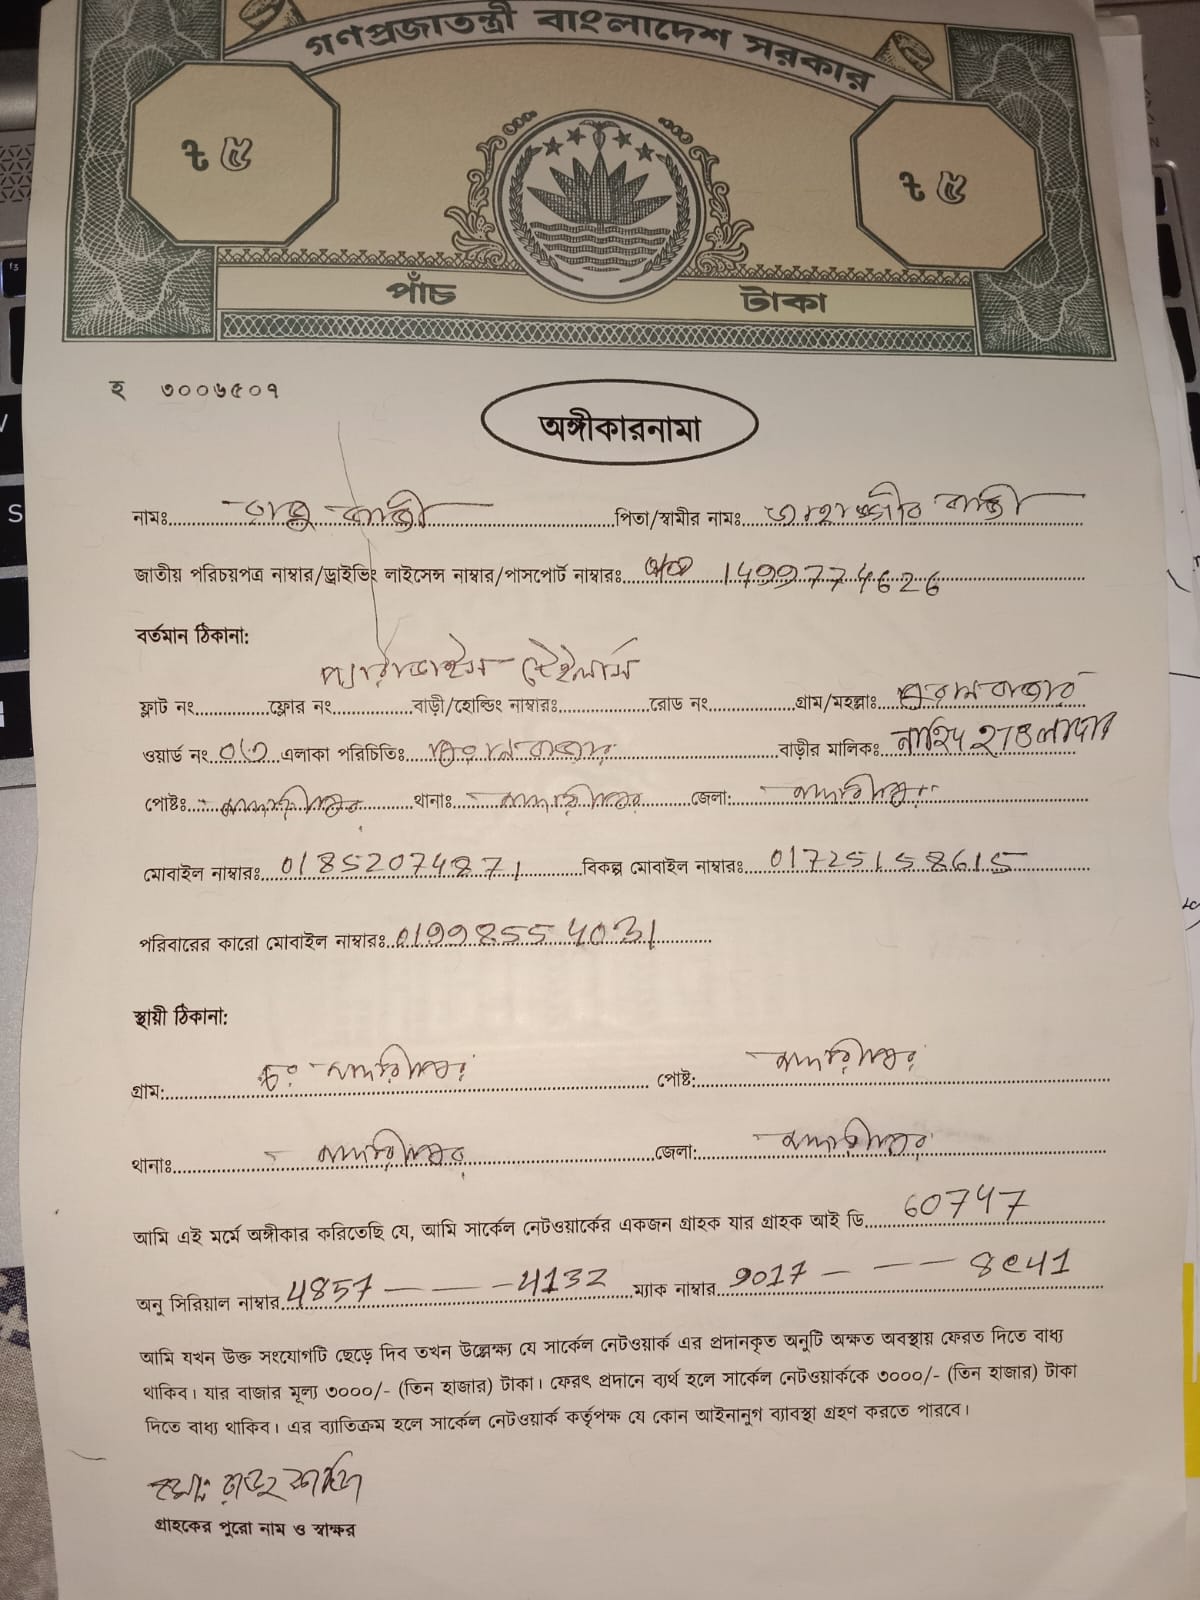 গণপ্রজাতন্ত্রী বাংলাদেশ সরকার
৳ ৫ ৳ ৫
পাঁচ টাকা
হ ৩০০৬৫০৭
অঙ্গীকারনামা
নামঃ পিতা/স্বামীর নামঃ
জাতীয় পরিচয়পত্র নাম্বার/ড্রাইভিং লাইসেন্স নাম্বার/পাসপোর্ট নাম্বারঃ 1499774626
বর্তমান ঠিকানা:
প্যারাডাইস টেইলার্স
ফ্লাট নং ফ্লোর নং বাড়ী/হোল্ডিং নাম্বারঃ রোড নং গ্রাম/মহল্লাঃ
ওয়ার্ড নং ০৩ এলাকা পরিচিতিঃ বাড়ীর মালিকঃ নাহিদ হাওলাদার
পোষ্টঃ মাদারীপুর থানাঃ মাদারীপুর জেলা: মাদারীপুর
মোবাইল নাম্বারঃ 01852074871 বিকল্প মোবাইল নাম্বারঃ 01725158615
পরিবারের কারো মোবাইল নাম্বারঃ 01998554031
স্থায়ী ঠিকানা:
গ্রাম: মাদারীপুর পোষ্ট: মাদারীপুর
থানাঃ মাদারীপুর জেলা: মাদারীপুর
আমি এই মর্মে অঙ্গীকার করিতেছি যে, আমি সার্কেল নেটওয়ার্কের একজন গ্রাহক যার গ্রাহক আই ডি 60747
অনু সিরিয়াল নাম্বার 4857 — — — 4132 ম্যাক নাম্বার 9017 — — — 8e41
আমি যখন উক্ত সংযোগটি ছেড়ে দিব তখন উল্লেক্ষ্য যে সার্কেল নেটওয়ার্ক এর প্রদানকৃত অনুটি অক্ষত অবস্থায় ফেরত দিতে বাধ্য
থাকিব। যার বাজার মূল্য ৩০০০/- (তিন হাজার) টাকা। ফেরৎ প্রদানে ব্যর্থ হলে সার্কেল নেটওয়ার্ককে ৩০০০/- (তিন হাজার) টাকা
দিতে বাধ্য থাকিব। এর ব্যাতিক্রম হলে সার্কেল নেটওয়ার্ক কর্তৃপক্ষ যে কোন আইনানুগ ব্যাবস্থা গ্রহণ করতে পারবে।
গ্রাহকের পুরো নাম ও স্বাক্ষর